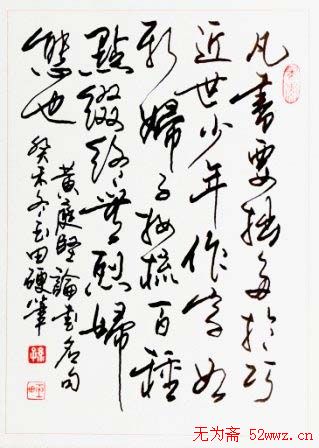 凡書要拙多於巧
近世少年作字如
新婦子妝梳百種
點綴終無烈婦
態也
黄庭堅論書名句
癸未冬玉田硬筆
无为斋 52wwz.cn